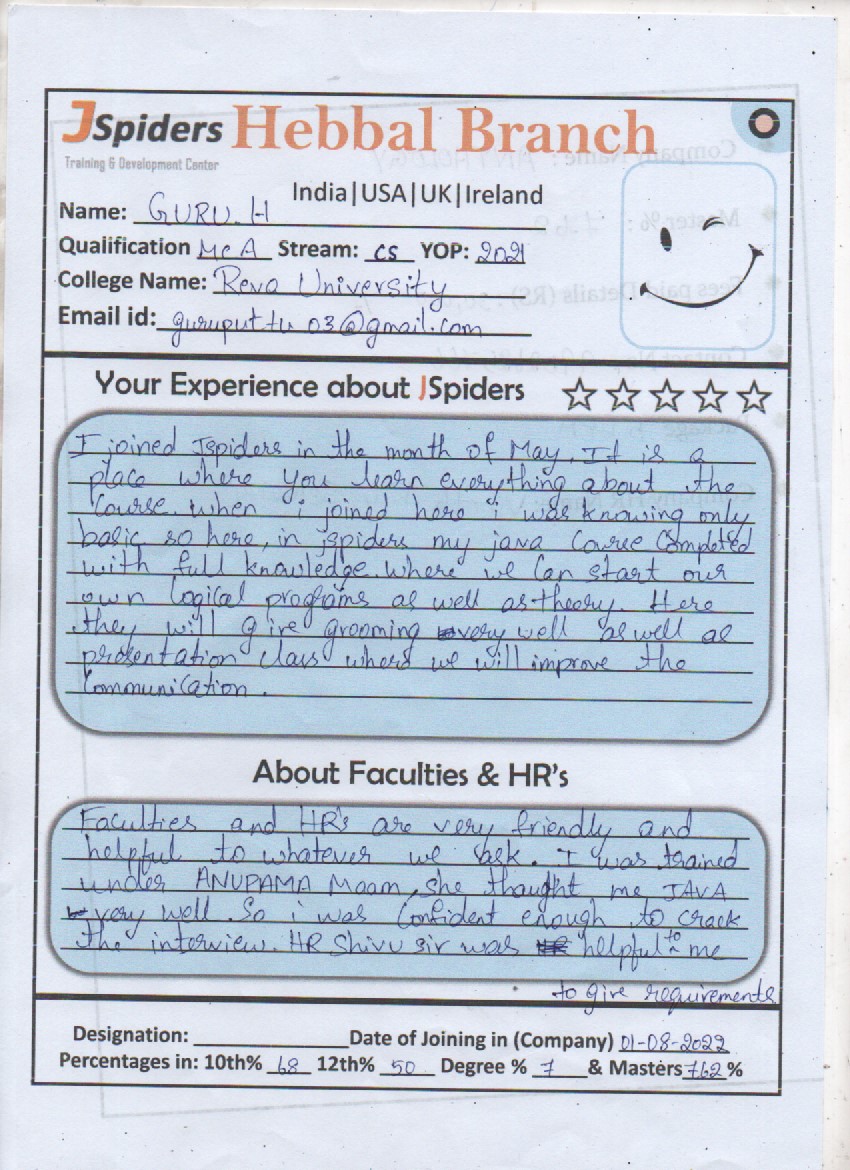 JSpiders Hebbal Branch
Training & Development Center
India|USA|UK|Ireland
Name: GURU. H
Qualification MCA Stream: CS YOP: 2021
College Name: Reva University
Email id: guruputtu03@gmail.com
Your Experience about JSpiders
I joined Jspiders in the month of May. It is a
place where you learn everything about the
Course. When i joined here i was knowing only
basic so here, in jspiders my java Course Completed
with full knowledge. Where we Can start our
own logical programs as well as theory. Here
they will give grooming very well as well as
presentation class where we will improve the
Communication.
About Faculties & HR's
Faculties and HR's are very friendly and
helpful to whatever we ask. I was trained
under ANUPAMA Maam, she thought me JAVA
very well. So i was Confident enough to crack
the interview. HR Shivu sir was helpful to me
to give requirements
Designation: Date of Joining in (Company) 01-08-2022
Percentages in: 10th% 68 12th% 50 Degree % 7 & Masters 7.62 %